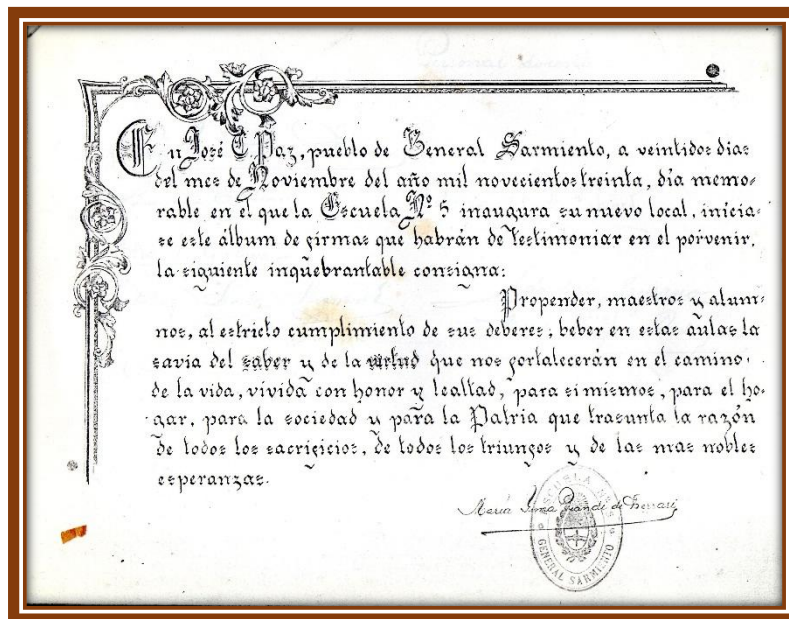 En José C. Paz, pueblo de General Sarmiento, a veintidos dias
del mes de Noviembre del año mil novecientos treinta, día memo-
rable en el que la Escuela Nº 5 inaugura su nuevo local, inícia-
se este álbum de firmas que habrán de testimoniar en el porvenir,
la siguiente inquebrantable consigna:
Propender, maestros y alum-
nos, al estricto cumplimiento de sus deberes; beber en estas aulas la
savia del saber y de la virtud que nos fortalecerán en el camino
de la vida, vivida con honor y lealtad, para si mismos, para el ho-
gar, para la sociedad y para la Patria que trasunta la razón
de todos los sacrificios, de todos los triunfos y de las mas nobles
esperanzas.
María de Ferrari
ESCUELA Nº 5
GENERAL SARMIENTO